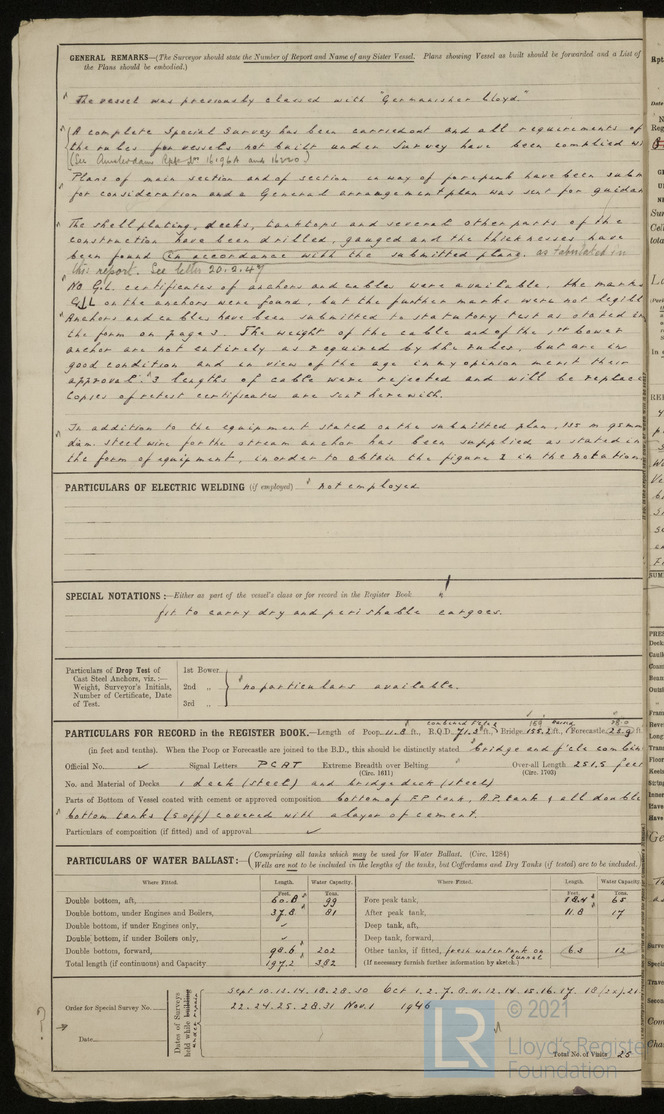 GENERAL REMARKS—(The Surveyor should state the Number of Report and Name of any Sister Vessel. Plans showing Vessel as built should be forwarded and a List of
the Plans should be embodied.)
The vessel was previously classed with "Germanischer Lloyd."
A complete Special Survey has been carried out and all requirements of
the rules for vessels not built under Survey have been complied wi
(See Amsterdam Rpts No 16964 and 16220.)
Plans of main section and of section in way of forepeak have been subm
for consideration and a General arrangement plan was sent for guidan
The shell plating, decks, tanktops and several other parts of the
construction have been drilled, gauged and the thicknesses have
been found in accordance with the submitted plans. as tabulated in
this report. See letter 20.2.47
No G.L. certificates of anchors and cables were available. the marks
G L on the anchors were found, but the further marks were not legibl
Anchors and cables have been submitted to statutory test as stated in
the form on page 3. The weight of the cable and of the 1st bower
anchor are not entirely as required by the rules, but are in
good condition and in view of the age in my opinion merit their
approval. 3 lengths of cable were rejected and will be replace
Copies of retest certificates are sent herewith.
In addition to the equipment stated on the submitted plan, 135 m 95mm
diam. steel wire for the stream anchor has been supplied as stated in
the form of equipment, in order to obtain the figure 1 in the notation
PARTICULARS OF ELECTRIC WELDING (if employed) not employed
SPECIAL NOTATIONS:—Either as part of the vessel's class or for record in the Register Book
fit to carry dry and perishable cargoes.
Particulars of Drop Test of
Cast Steel Anchors, viz.:—
Weight, Surveyor's Initials,
Number of Certificate, Date
of Test.
1st Bower
2nd „
3rd „
no particulars available.
PARTICULARS FOR RECORD in the REGISTER BOOK.—Length of Poop 11.8 ft., R.Q.D. 71.2 ft., Bridge 155.2 ft., Forecastle 25.9 ft.
(in feet and tenths). When the Poop or Forecastle are joined to the B.D., this should be distinctly stated bridge and f'cle combin
Official No. Signal Letters PCAT Extreme Breadth over Belting Over-all Length 251.5 feet
(Circ. 1611) (Circ. 1703)
No. and Material of Decks 1 deck (steel) and bridge deck (steel)
Parts of Bottom of Vessel coated with cement or approved composition bottom of F.P. tank, A.P. tank & all double
bottom tanks (5 off) covered with a layer of cement.
Particulars of composition (if fitted) and of approval
PARTICULARS OF WATER BALLAST:—
Comprising all tanks which may be used for Water Ballast. (Circ. 1284)
Wells are not to be included in the lengths of the tanks, but Cofferdams and Dry Tanks (if tested) are to be included.
Where Fitted. Length. Water Capacity. Where Fitted. Length. Water Capacity.
Feet. Tons. Feet. Tons.
Double bottom, aft, 60.8 99 Fore peak tank, 18.4 65
Double bottom, under Engines and Boilers, 37.8 81 After peak tank, 11.8 17
Double bottom, if under Engines only, Deep tank, aft,
Double bottom, if under Boilers only, Deep tank, forward,
Double bottom, forward, 98.6 202 Other tanks, if fitted, fresh water tank on tunnel 6.3 12
Total length (if continuous) and Capacity 197.2 382 (If necessary furnish further information by sketch.)
Order for Special Survey No.
Date
Dates of Surveys
held while building
under repairs
Sept 10.12.14.18.28.30 Oct 1.2.7.8.11.12.14.15.16.17
22.24.25.28.31 Nov.1 1946
Total No. of Visits 25
LR
© 2021
Lloyd's Registe
Foundation